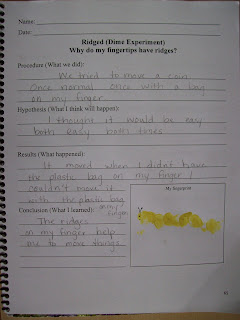 Name:
Date:
Ridged (Dime Experiment)
Why do my fingertips have ridges?
Procedure (What we did):
We tried to move a coin
Once normal once with a bag
on my finger
Hypothesis (What I think will happen):
I thought it would be easy
both easy both times
Results (What happened):
It moved when I didn't have
the plastic bag on my finger I
couldn't move it
with the plastic bag
on my finger
My fingerprint
Conclusion (What I learned):
The ridges
on my finger help
me to move things